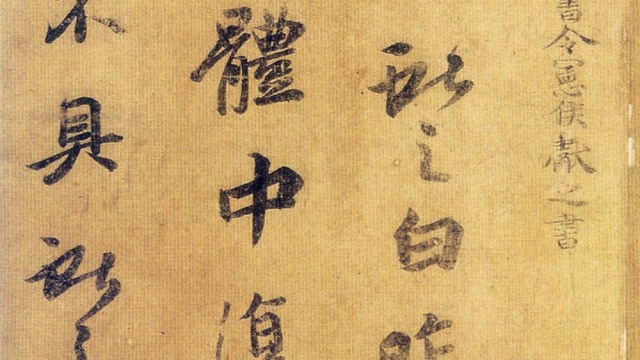 書令憲侯獻之書
獻之白昨
體中復
不具獻之